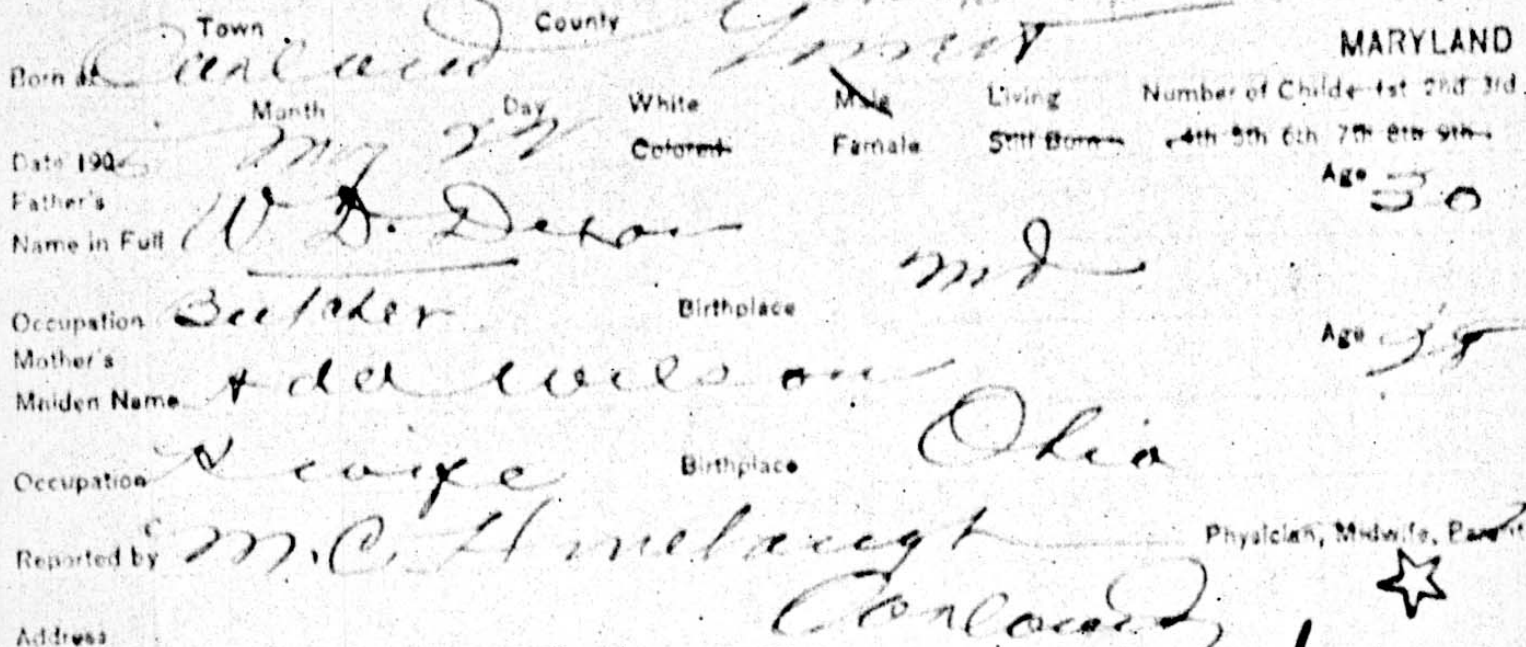 Town County
Born at Oakland Garrett MARYLAND
Month Day White Male Living Number of Childe 1st 2nd 3rd
Date 190 May 22 Colored Female Still Born 4th 5th 6th 7th 8th 9th
Father's Age 30
Name in Full W D. Dixon
Occupation Butcher Birthplace Md
Mother's Age
Maiden Name Ada Wilson
Occupation H wife Birthplace Ohio
Reported by M. C. Hinebaugh Physician, Midwife, Parent
Address Oakland